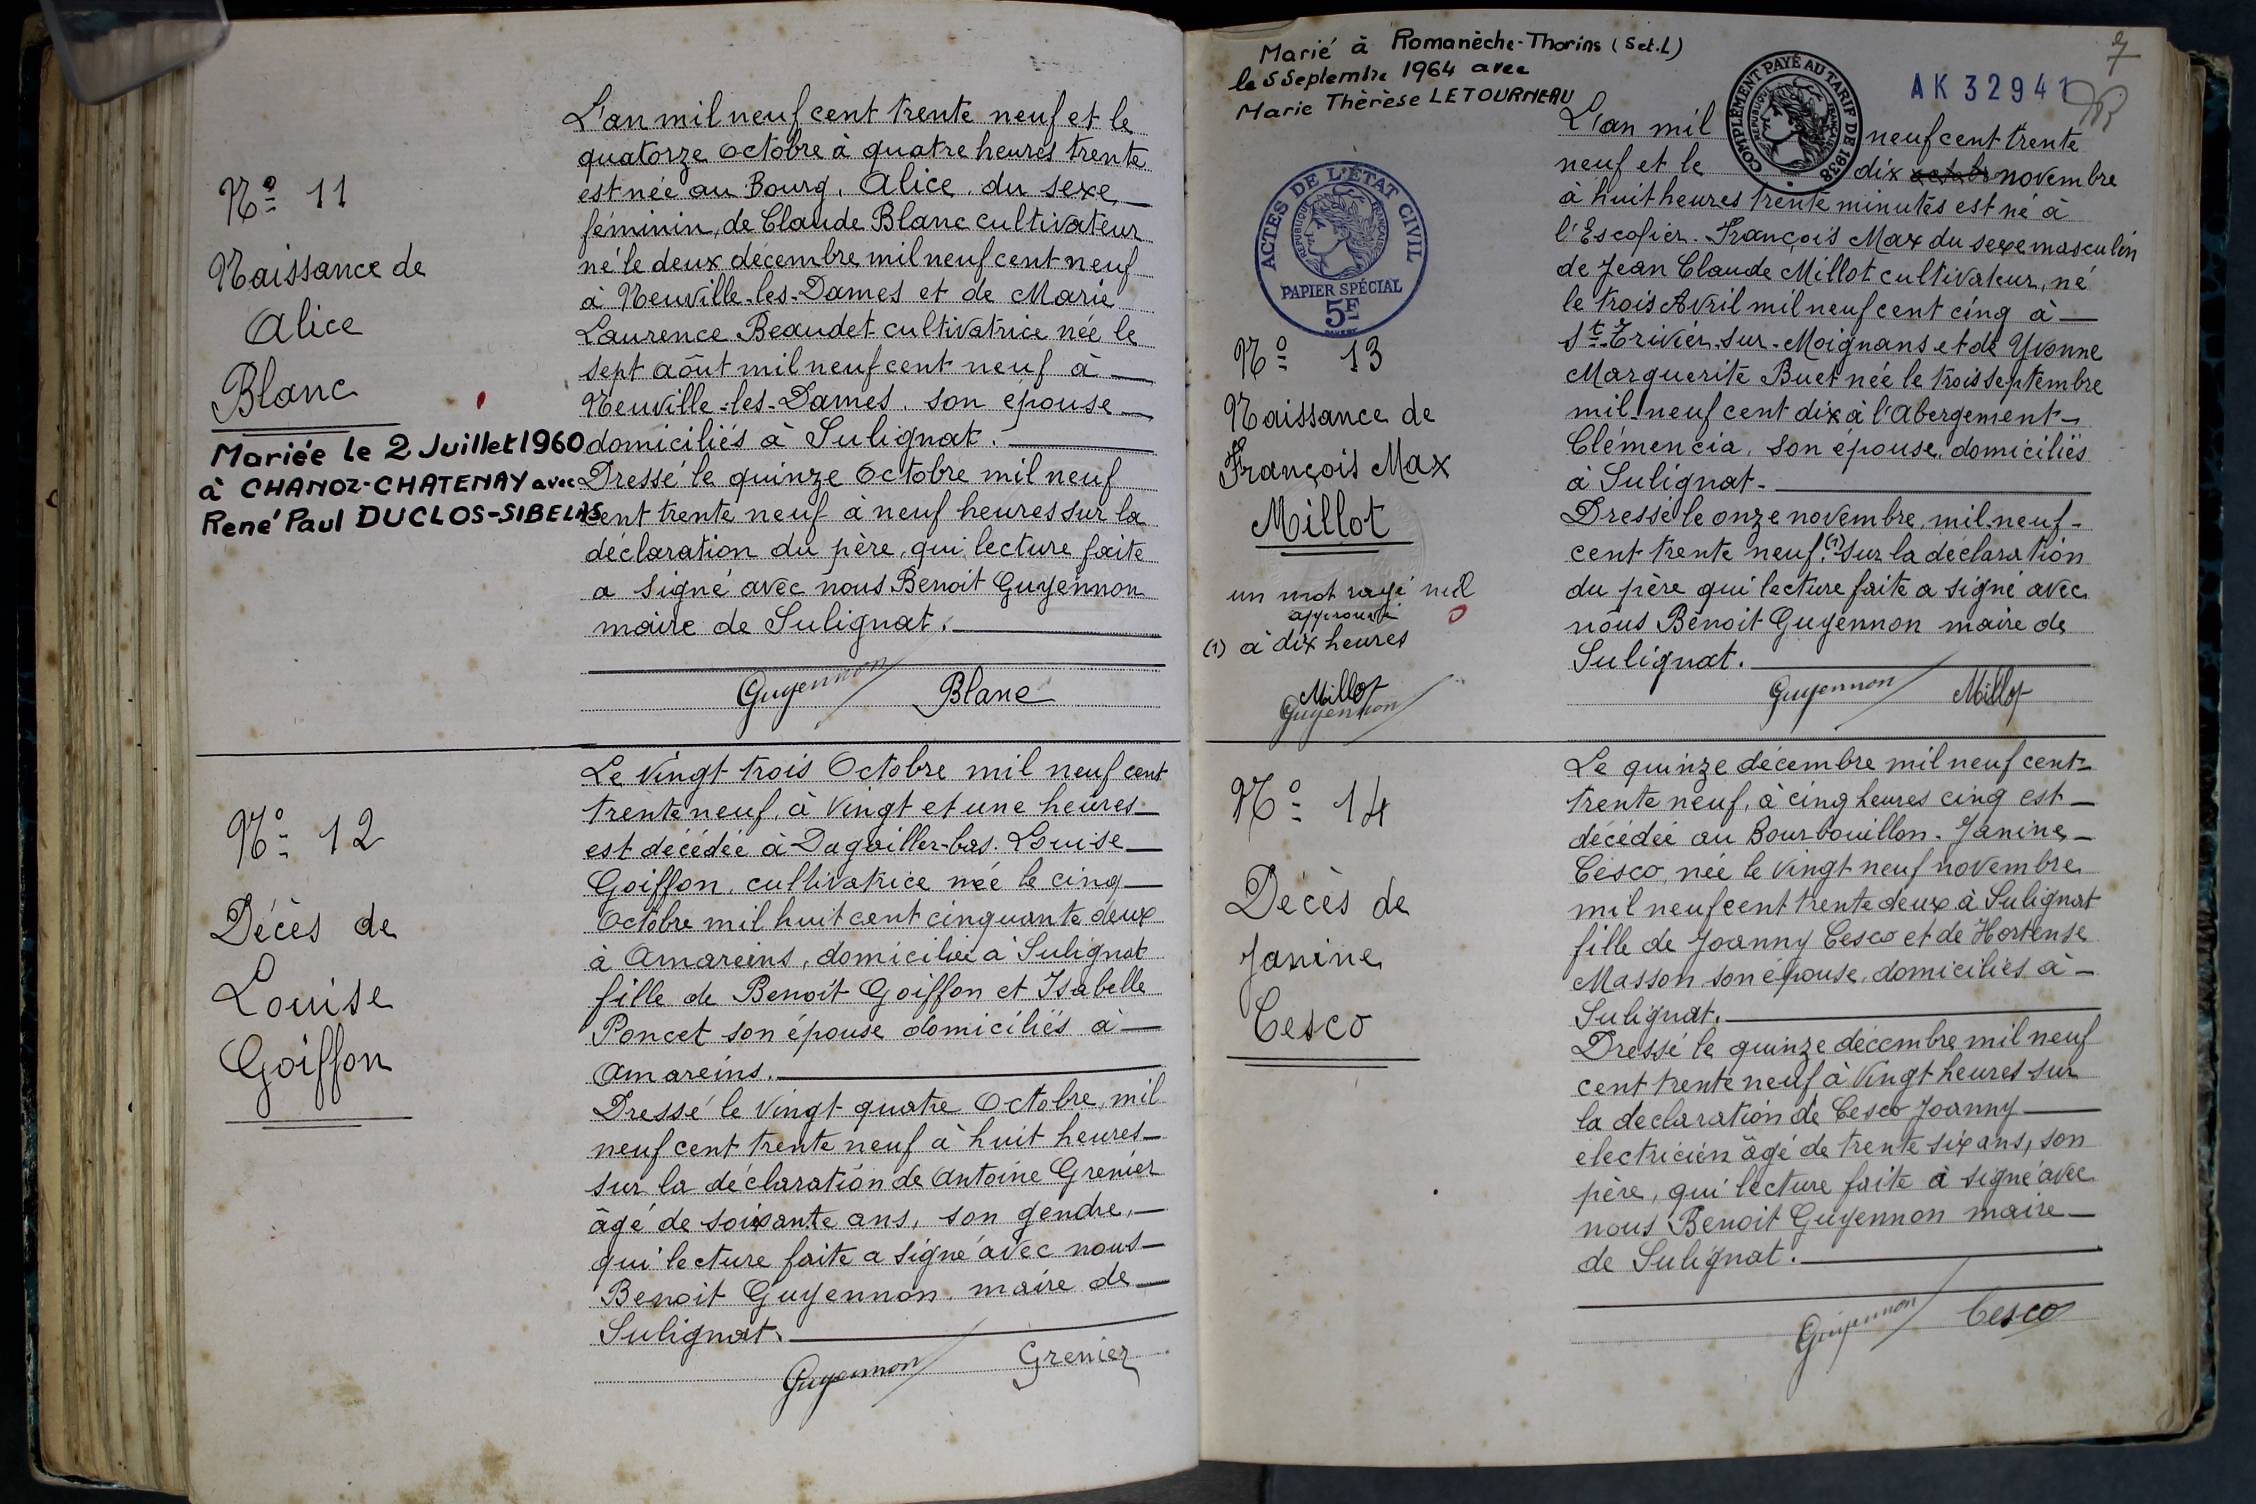 N° 11
Naissance de
Alice
Blanc
Mariée le 2 Juillet 1960
à CHANOZ-CHATENAY avec
René Paul DUCLOS-SIBELAS
L'an mil neuf cent trente neuf et le
quatorze Octobre à quatre heures trente
est née au Bourg. Alice du sexe
féminin, de Claude Blanc cultivateur
né le deux décembre mil neuf cent neuf
à Neuville-les-Dames et de Marie
Laurence Beaudet cultivatrice née le
sept août mil neuf cent neuf à
Neuville-les-Dames, son épouse
domiciliés à Sulignat.
Dressé le quinze Octobre mil neuf
cent trente neuf à neuf heures sur la
déclaration du père, qui lecture faite
a signé avec nous Benoit Guyennon
maire de Sulignat.
Guyennon Blanc
N° 12
Décès de
Louise
Goiffon
Le vingt trois Octobre mil neuf cent
trente neuf, à vingt et une heures
est décédée à Dagailler-bas. Louise
Goiffon, cultivatrice née le cinq
Octobre mil huit cent cinquante deux
à Amareins, domiciliée à Sulignat
fille de Benoit Goiffon et Isabelle
Poncet son épouse domiciliés à
Amareins.
Dressé le vingt quatre Octobre, mil
neuf cent trente neuf à huit heures
sur la déclaration de Antoine Grenier
âgé de soixante ans, son gendre,
qui lecture faite a signé avec nous
Benoit Guyennon, maire de
Sulignat.
Guyennon Grenier
7
AK 32941
Marié à Romanèche-Thorins (S et.L)
le 5 Septembre 1964 avec
Marie Thérèse LETOURNEAU
COMPLÉMENT PAYÉ AU TARIF DE 1938
RÉPUBLIQUE FRANÇAISE
ACTES DE L'ÉTAT CIVIL
RÉPUBLIQUE FRANÇAISE
PAPIER SPÉCIAL
5F
N° 13
Naissance de
François Max
Millot
un mot rayé nul
approuvé
(1) à dix heures
Millot
Guyennon
L'an mil neuf cent trente
neuf et le dix octobr novembre
à huit heures trente minutes est né à
l'Escofier. François Max du sexe masculin
de Jean Claude Millot cultivateur, né
le trois Avril mil neuf cent cinq à
St-Trivier-sur-Moignans et de Yvonne
Marguerite Buet née le trois septembre
mil neuf cent dix à l'Abergement-
Clémencia, son épouse, domiciliés
à Sulignat.
Dressé le onze novembre, mil neuf-
cent trente neuf,(1) sur la déclaration
du père qui lecture faite a signé avec
nous Benoit Guyennon maire de
Sulignat.
Guyennon Millot
N° 14
Décès de
Janine
Cesco
Le quinze décembre mil neuf cent-
trente neuf, à cinq heures cinq est
décédée au Bourbouillon. Janine
Cesco, née le vingt neuf novembre
mil neuf cent trente deux à Sulignat
fille de Joanny Cesco et de Hortense
Masson son épouse, domiciliés à
Sulignat.
Dressé le quinze décembre mil neuf
cent trente neuf à vingt heures sur
la déclaration de Cesco Joanny
électricien âgé de trente six ans, son
père, qui lecture faite à signé avec
nous Benoit Guyennon maire
de Sulignat.
Guyennon Cesco